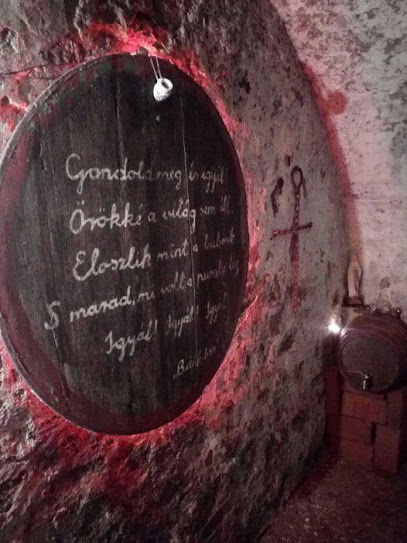 Gondold meg, és igyál
Örökké a világ sem áll.
Eloszlik mint a buborék
S marad, mi volt, a puszta lég
Igyál! Igyál! Igyál!